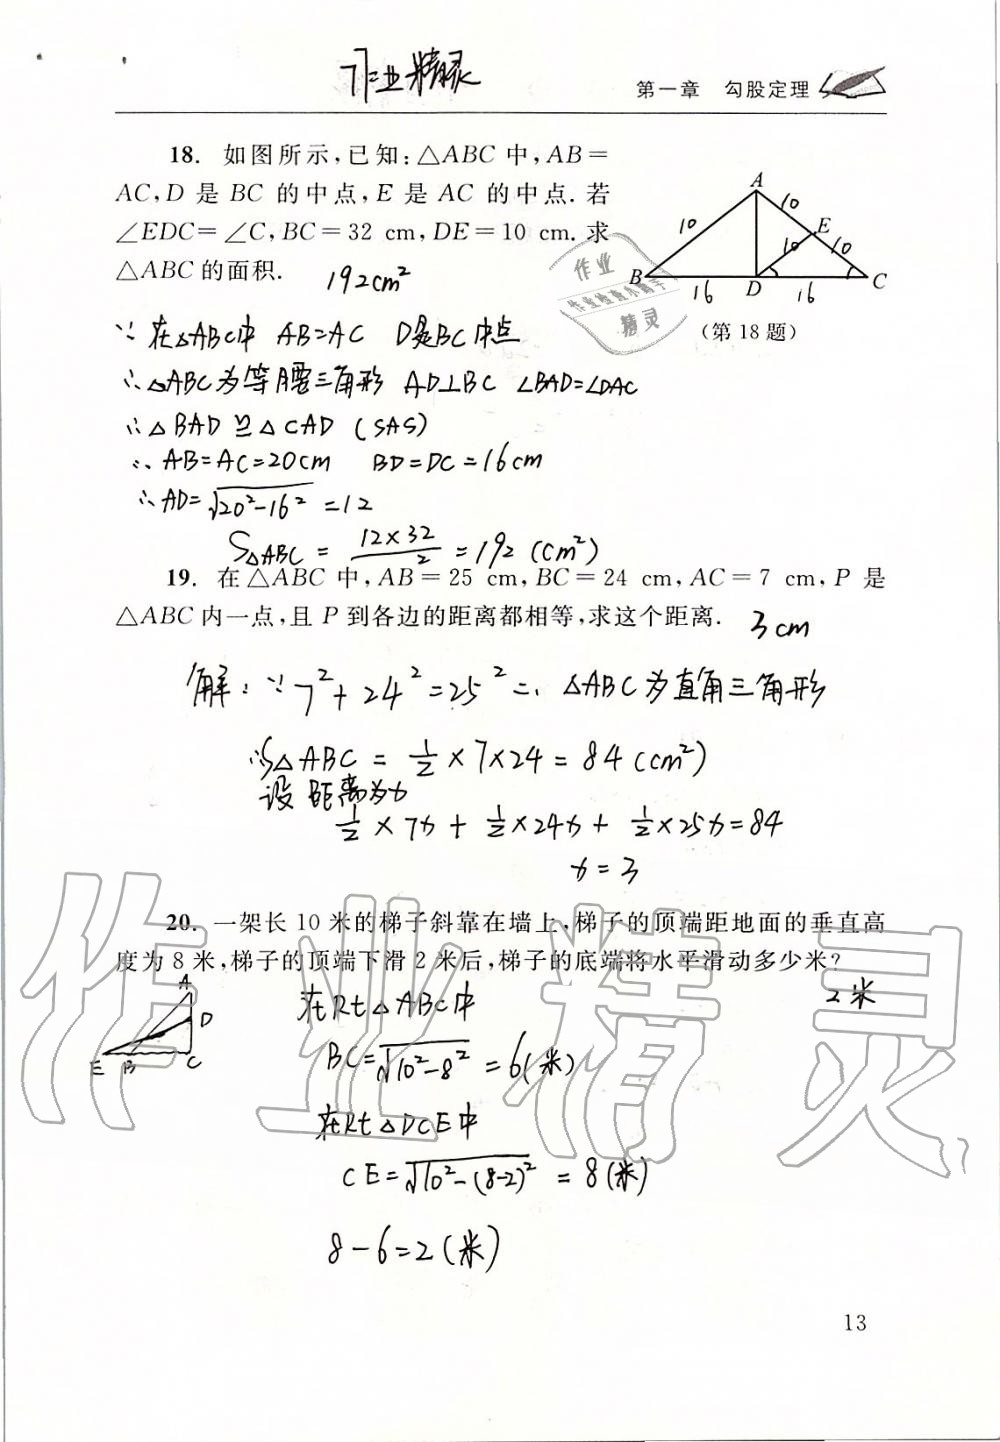 作业精灵
第一章 勾股定理
18. 如图所示,已知:△ABC 中,AB=
AC,D 是 BC 的中点,E 是 AC 的中点.若
∠EDC=∠C,BC=32 cm,DE=10 cm.求
△ABC 的面积. 192cm²
A
10
10
E
10
10
B
16
D
16
C
(第 18 题)
作业
作业检查小帮手
精灵
∵在△ABC中 AB=AC D是BC中点
∴△ABC为等腰三角形 AD⊥BC ∠BAD=∠DAC
∴△BAD≌△CAD (SAS)
∴AB=AC=20cm BD=DC=16cm
∴AD=√20²-16² =12
S△ABC = 12×32/2 =192 (cm²)
19. 在△ABC 中,AB=25 cm,BC=24 cm,AC=7 cm,P 是
△ABC 内一点,且 P 到各边的距离都相等,求这个距离. 3cm
解:∵7²+24²=25² ∴△ABC为直角三角形
∴S△ABC = 1/2×7×24=84(cm²)
设距离为x
1/2×7x+1/2×24x+1/2×25x=84
x=3
20. 一架长 10 米的梯子斜靠在墙上,梯子的顶端距地面的垂直高
度为 8 米,梯子的顶端下滑 2 米后,梯子的底端将水平滑动多少米?
2米
A
D
E B C
在Rt△ABC中
BC=√10²-8² =6(米)
在Rt△DCE中
CE=√10²-(8-2)² =8(米)
8-6=2(米)
作业精灵
13